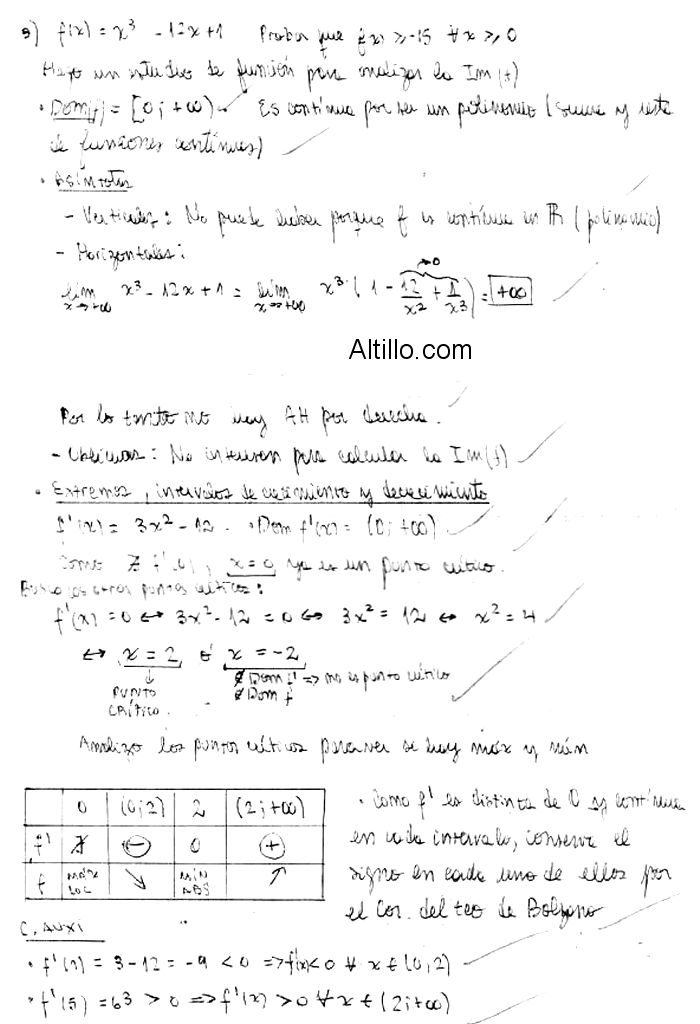 5) f(x) = x³ - 12x + 1 Probar que f(x) ≥ -15 ∀ x ≥ 0
Hago un estudio de función para analizar la Im(f)
• Dom(f) = [0; +∞) Es continua por ser un polinomio (suma y resta
de funciones continuas)
• Asíntotas
- Verticales: No puede haber porque f es continua en ℝ (polinomio)
- Horizontales:
→0
lím x→+∞ x³ - 12x + 1 = lím x→+∞ x³ · (1 - 12/x² + 1/x³) = +∞
Altillo.com
Por lo tanto no hay AH por derecha.
- Oblicuas: No interesan para calcular la Im(f)
• Extremos, intervalos de crecimiento y decrecimiento
f'(x) = 3x² - 12 . • Dom f'(x) = (0; +∞)
Como ∄ f'(0), x = 0 ya es un punto crítico.
Busco los otros puntos críticos:
f'(x) = 0 ↔ 3x² - 12 = 0 ↔ 3x² = 12 ↔ x² = 4
↔ x = 2 ó x = -2
↓ ∉ Dom f' => no es punto crítico
PUNTO ∉ Dom f
CRÍTICO.
Analizo los puntos críticos para ver si hay máx y mín
0 (0;2) 2 (2;+∞)
f' ∄ ⊖ 0 ⊕
f MÁX LOC ↘ MIN ABS ↗
• Como f' es distinta de 0 y continua
en cada intervalo, conserva el
signo en cada uno de ellos por
el Cor. del teo de Bolzano
C. AUXI
• f'(1) = 3 - 12 = -9 < 0 => f'(x) < 0 ∀ x ∈ (0,2)
• f'(5) = 63 > 0 => f'(x) > 0 ∀ x ∈ (2;+∞)